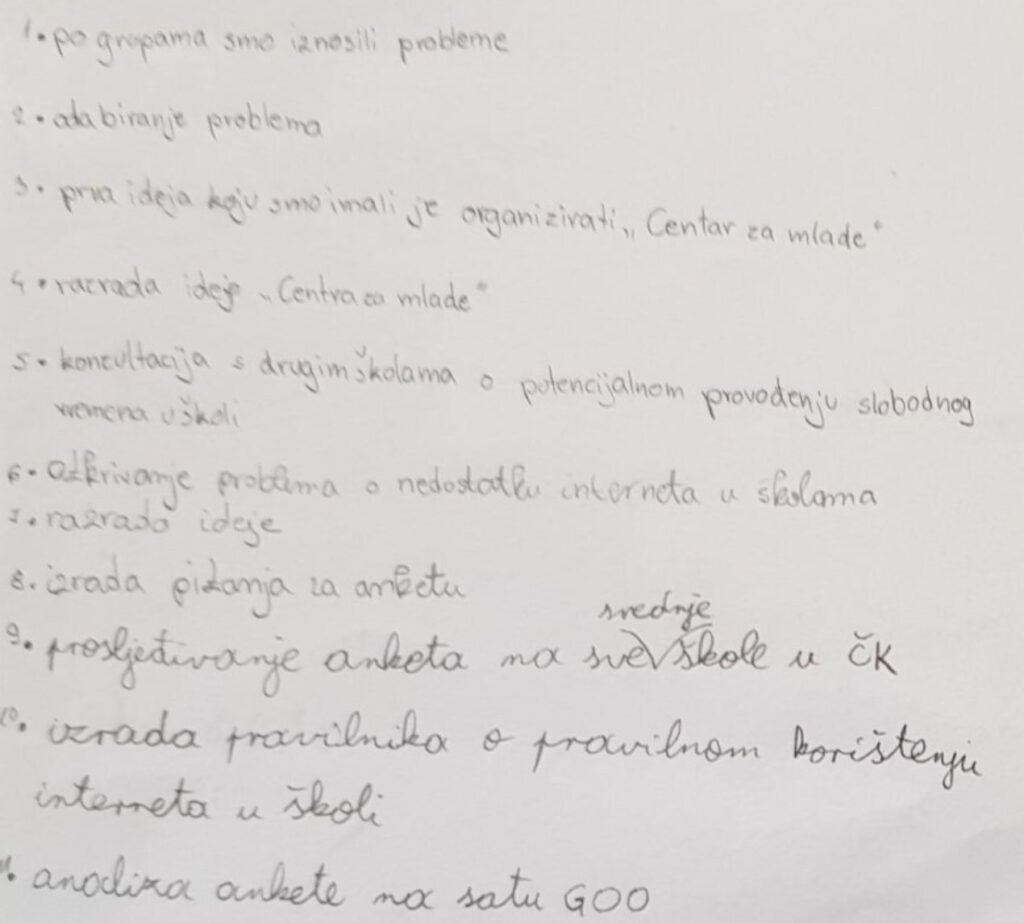 1. po grupama smo iznosili probleme
2. odabiranje problema
3. prva ideja koju smo imali je organizirati „Centar za mlade“
4. razrada ideje „Centra za mlade“
5. konzultacija s drugim školama o potencijalnom provođenju slobodnog
vremena u školi
6. otkrivanje problema o nedostatku interneta u školama
7. razrada ideje
8. izrada pitanja za anketu
srednje
9. prosljeđivanje anketa na sve škole u ČK
10. izrada pravilnika o pravilnom korištenju
interneta u školi
11. analiza ankete na satu GOO